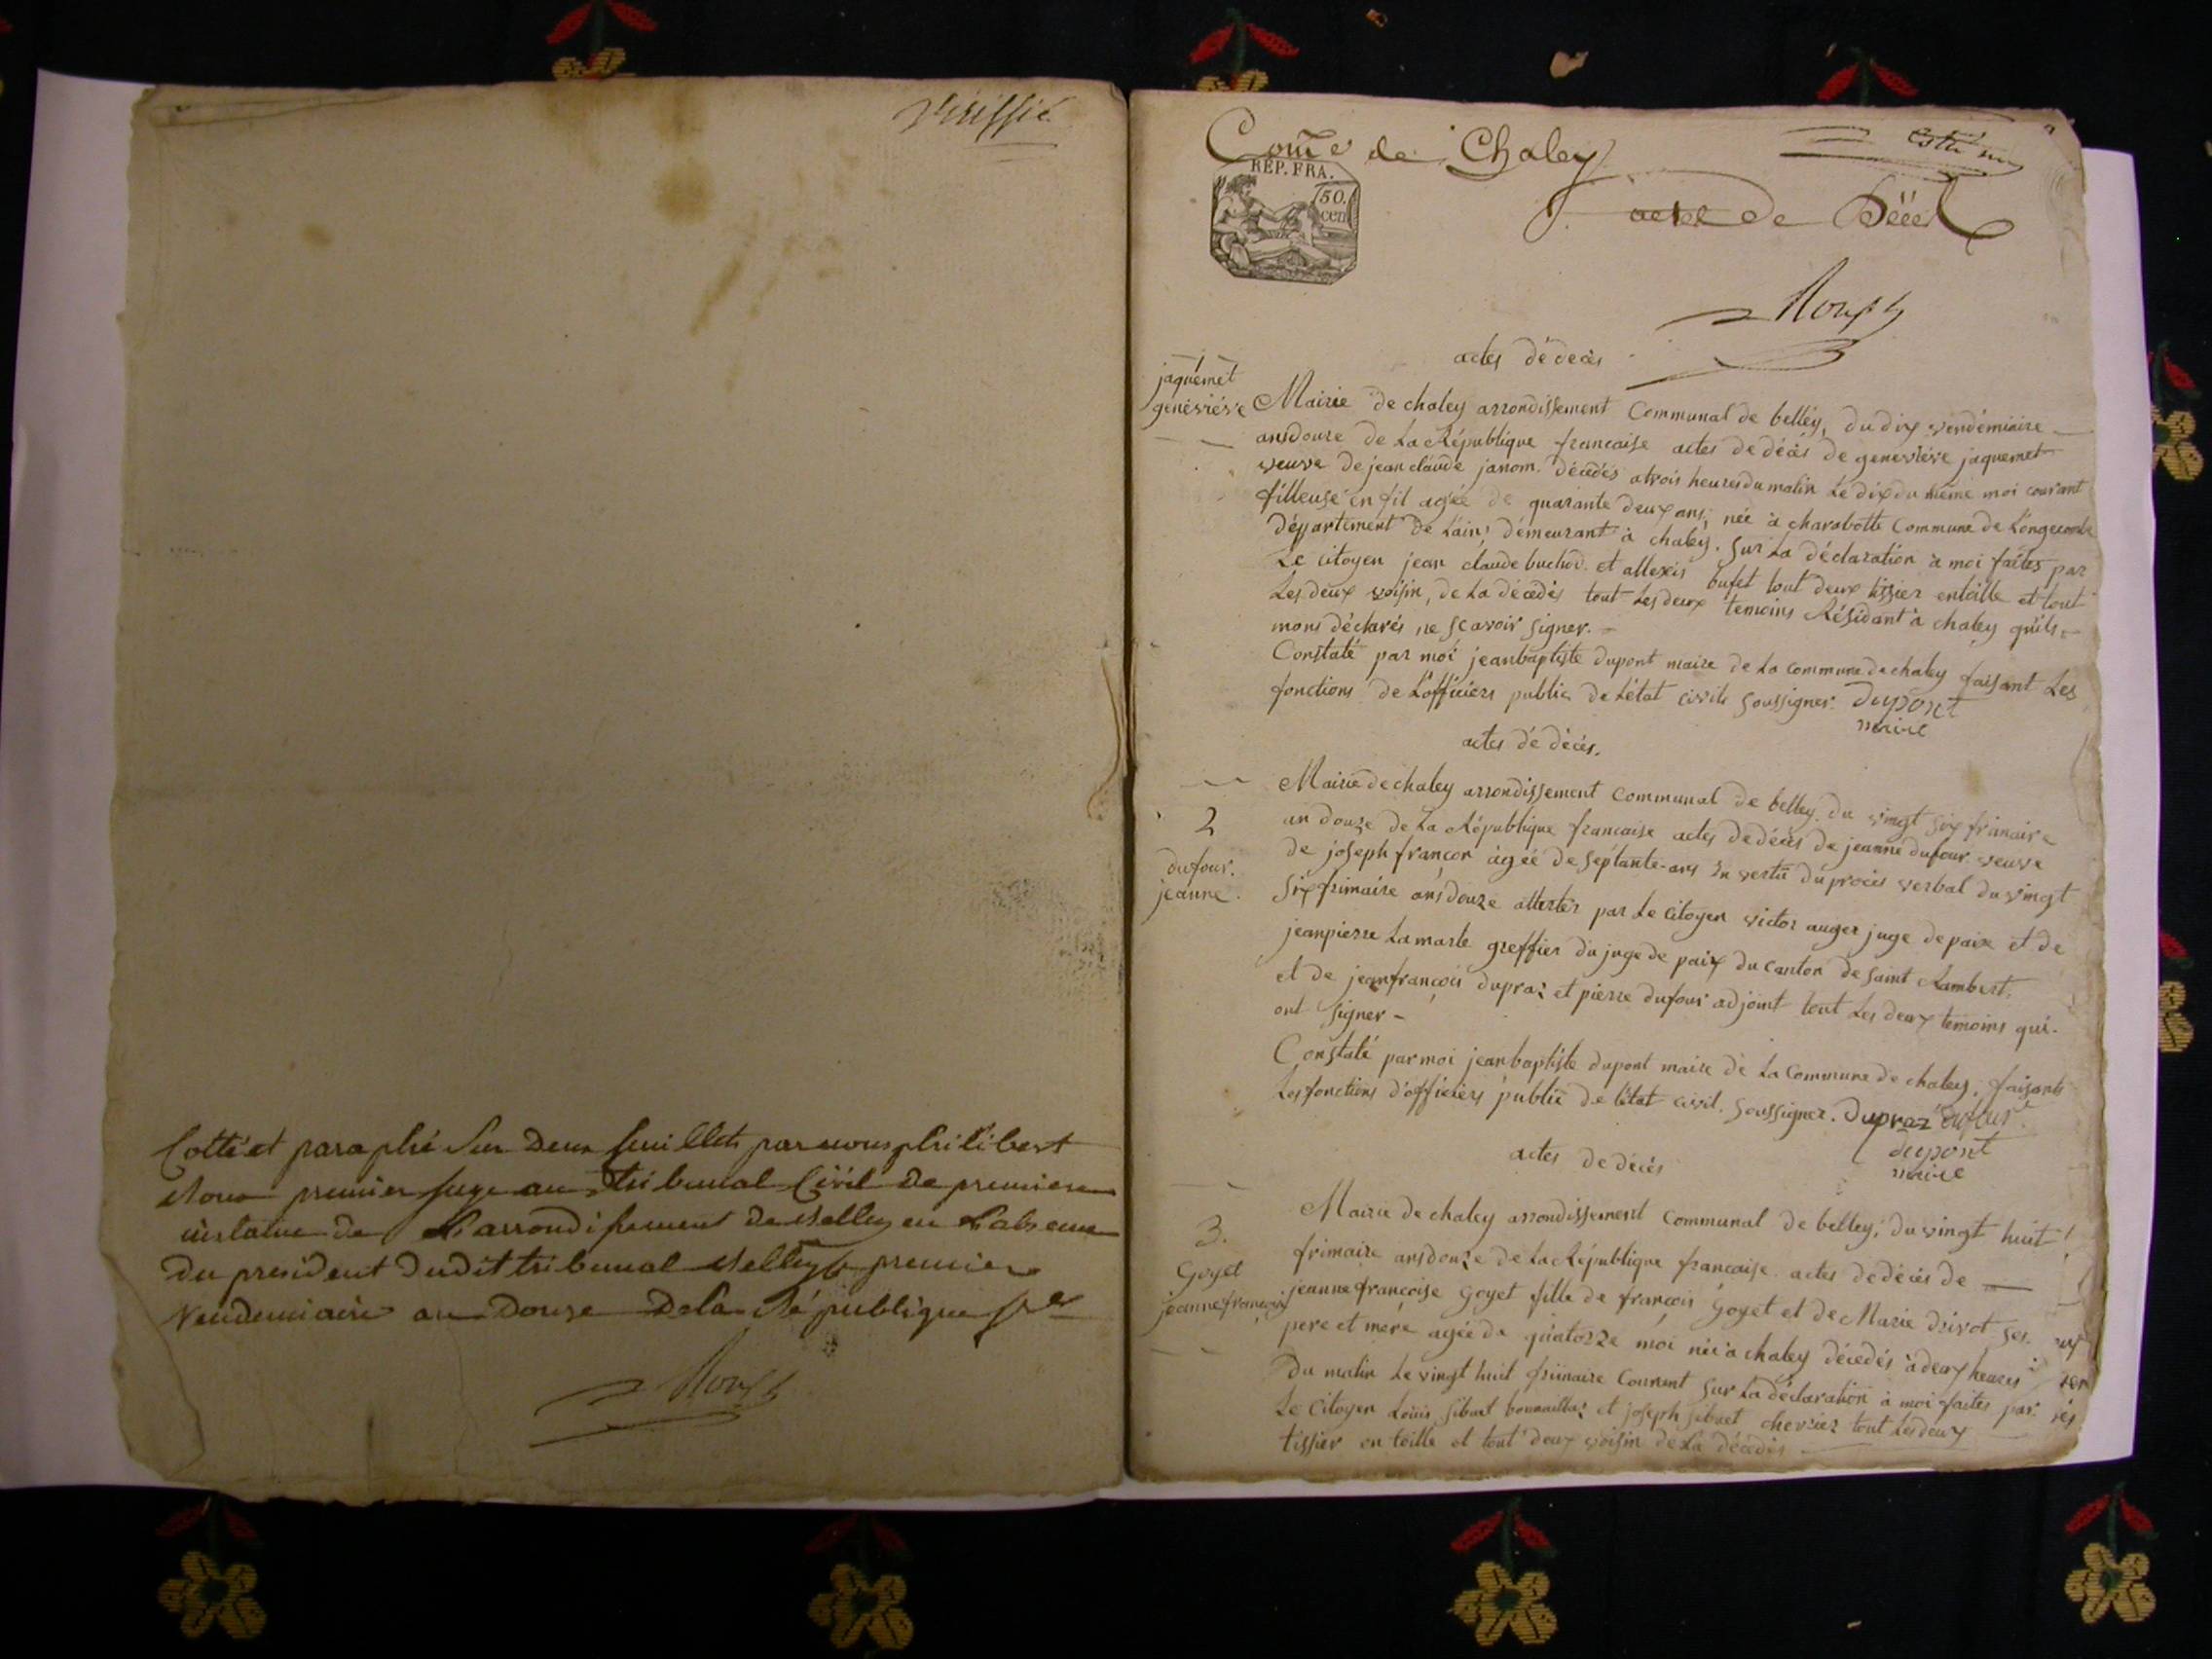 Vérifié
Cotté et paraphé sur deux feuillets par nous philibert
premier juge au tribunal Civil de premiere
instance de L'arrondissement de Belley en L'absence
du president dudit tribunal Belley le premier
Vendemiaire an Douze de la République fse
Come de Chaley
RÉP. FRA.
50.
cen
acte de Décè
actes dédecès
jaquémet
généviéve
Mairie de chaley arrondissement Communal de belley, du dix vendémiaire
ansdouze de La République francaise actes de décés de geneviéve jaquemet
veuve de jean claude janom. décédés a trois heures du matin Le dix du même moi courant
filleuse en fil agée de quarante deux ans, née à charabotte Commune de Longecombe
département de Lain, demeurant à chaley. sur La déclaration à moi faites par
Le citoyen jean claude buchod et allexis bufet tout deux tissier entoille et tout
Les deux voisin, de La décédés tout Les deux temoins Résidant à chaley quils
mons déclarés ne scavoir signer.
Constaté par moi jeanbaptiste dupont maire de La commune de chaley faisant Les
fonctions de L'officiers public de Létat civils soussigner. dupont
maire
actes dé décès.
2
dufour.
jeanne.
Mairie de chaley arrondissement Communal de belley du vingt six frimaire
an douze de La République francaise actes de décés de jeanne dufour veuve
de joseph françon agée de septante ans En vertu du procés verbal du vingt
six frimaire ans douze attester par Le Citoyen victor auger juge de paix et de
jeanpierre Lamarle greffier du juge de paix du canton de saint Rambert.
et de jeanfrançois dupraz et pierre dufour adjoint tout Les deux temoins qui
ont signer
Constaté par moi jeanbaptiste dupont maire de La Commune de chaley, faisant
Les fonctions d'officiers public de létat civil. soussigner. dupraz dufour
dupont
maire
actes de décés
3.
Goyet
jeannefrançois
Mairie de chaley arrondissement Communal de belley, du vingt huit
frimaire ansdouze de La République francaise. actes de décés de
jeanne françoise Goyet fille de françois Goyet et de Marie drivot ses
pere et mere agée de quatorze moi née à chaley décédés à deux heures
du matin Le vingt huit frimaire Courant sur La déclaration à moi faites par
Le Citoyen Louis sibuet bonmaillaz et joseph sibuet chevriez tout Les deux
tissier en toille et tout deux voisin de La décédés